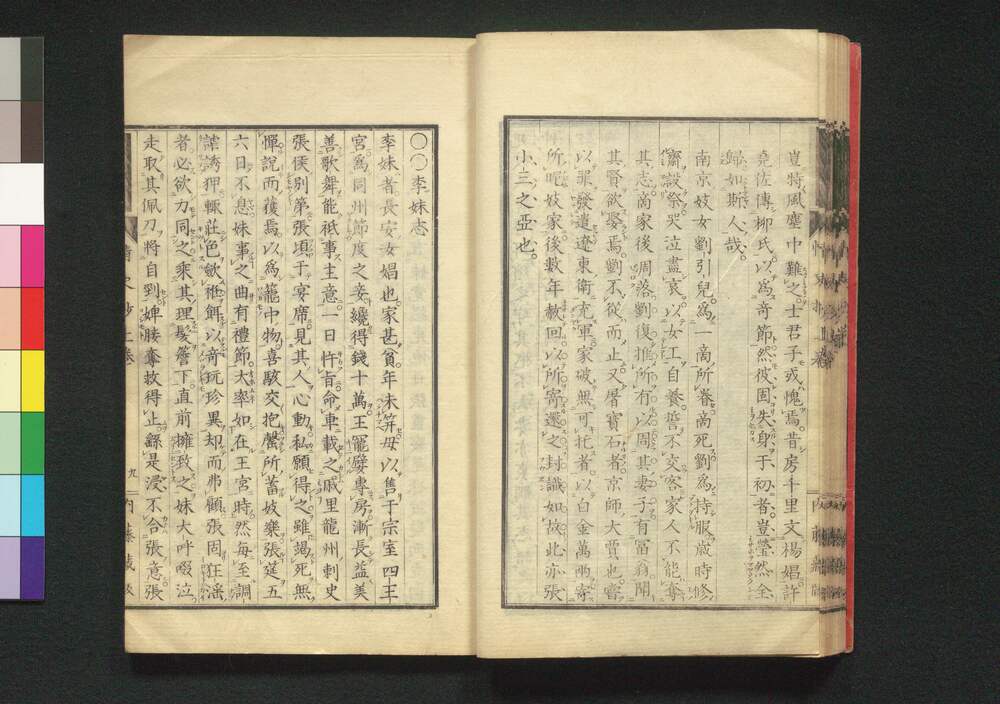 豈特風塵中難之。士君子或愧焉。昔房千里文楊娼。許
堯佐傳柳氏。以爲奇節。然彼固失身于初者。豈瑩然全
歸如斯人哉。
南京妓女劉引兒。爲一商所眷。商死。劉爲持服。歲時修
齋設祭。哭泣盡哀。以女工自養。誓不交客。家人不能奪
其志。商家後周落。劉復推所有。以周其妻子。有冨翁聞
其賢。欲娶焉。劉不從而止。又屠寶石者。京師大賈也。嘗
以罪發遣遼東衛充軍。家破。無可托者。以白金萬兩寄
所昵妓家。後數年赦回。以所寄還之。封識如故。此亦張
小三之亞也。
〇〇李妹志
李妹者。長安女娼也。家甚貧。年未笄。母以售于宗室四王
宮。爲同州節度之妾。纔得錢十萬。王寵嬖專房。漸長益美。
善歌舞。能祗事主意。一日忤旨。命車載之戚里龍州刺史
張侯別第。張頃于宴席見其人。心動。私願得之。雖竭死無
憚。說而獲焉。以爲籠中物。喜駭交抱。罄所蓄妓樂。張筵五
六日不息。妹事之曲有禮節。大率如在王宮時。然每至調
謔誘狎。輒莊色斂衽。餌以奇玩珍異。却而弗顧。張固狂淫
者。必欲力同之。乘其理髮簷下。直前擁致之。妹大呼啜泣。
走取其佩刀。將自刭。婢媵奪救得止。繇是浸不合張意。張
九